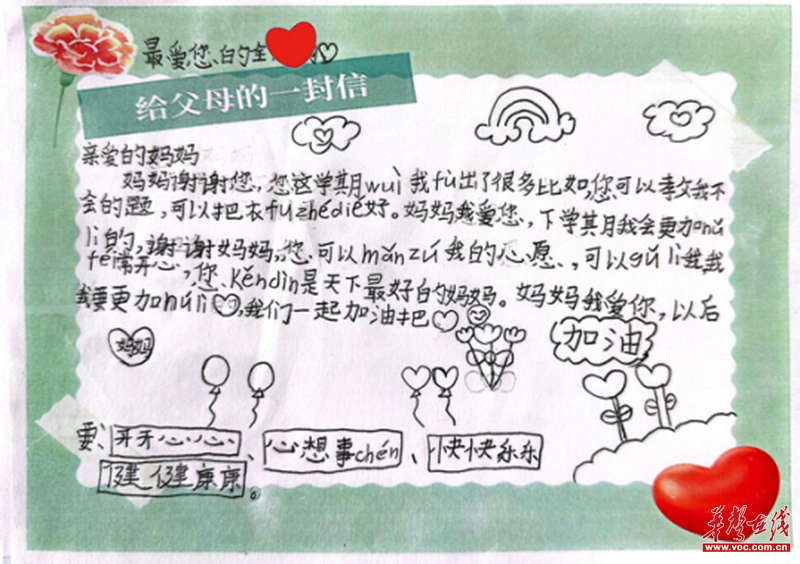 最爱您的全
给父母的一封信
亲爱的妈妈
妈妈谢谢您，您这学期wuì我fú出了很多比如您可以孝文我不
会的题，可以把衣fuzhédié好。妈妈我爱您，下学其月我会更加nǔ
lì的，谢谢妈妈，您可以mǎnzú我的心愿、，可以gǔlì我
fēi常开心，您、Kěndìn是天下最好的妈妈。妈妈我爱你，以后
我要更加nǔlì，我们一起加油把
妈妈
加油
要、开开心心、心想事chén、快快乐乐
健健康康。
华声在线
www.voc.com.cn